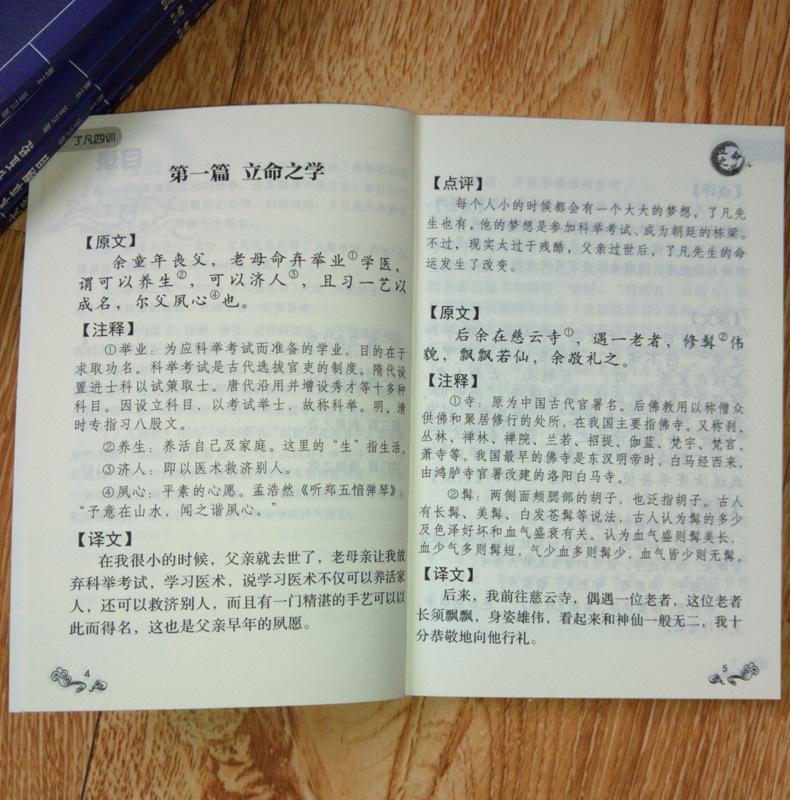 了凡四训
第一篇 立命之学
【原文】
余童年丧父，老母命弃举业①学医，
谓可以养生②，可以济人③，且习一艺以
成名，尔父夙心④也。
【注释】
①举业：为应科举考试而准备的学业，目的在于
求取功名。科举考试是古代选拔官吏的制度。隋代设
置进士科以试策取士。唐代沿用并增设秀才等十多种
科目。因设立科目，以考试举士，故称科举。明、清
时专指习八股文。
②养生：养活自己及家庭。这里的“生”指生活，
③济人：即以医术救济别人。
④夙心：平素的心愿。孟浩然《听郑五愔弹琴》：
“予意在山水，闻之谐夙心。”
【译文】
在我很小的时候，父亲就去世了，老母亲让我放
弃科举考试，学习医术，说学习医术不仅可以养活家
人，还可以救济别人，而且有一门精湛的手艺可以以
此而得名，这也是父亲早年的夙愿。
4
立命之学
【点评】
每个人小的时候都会有一个大大的梦想，了凡先
生也有，他的梦想是参加科举考试、成为朝廷的栋梁。
不过，现实太过于残酷，父亲过世后，了凡先生的命
运发生了改变。
【原文】
后余在慈云寺①，遇一老者，修髯②伟
貌，飘飘若仙，余敬礼之。
【注释】
①寺：原为中国古代官署名。后佛教用以称僧众
供佛和聚居修行的处所，在我国主要指佛寺。又称刹、
丛林、禅林、禅院、兰若、招提、伽蓝、梵宇、梵官、
萧寺等。我国最早的佛寺是东汉明帝时，白马经西来，
由鸿胪寺官署改建的洛阳白马寺。
②髯：两侧面颊腮部的胡子，也泛指胡子。古人
有长髯、美髯、白发苍髯等说法，古人认为髯的多少
及色泽好坏和血气盛衰有关。认为血气盛则髯美长，
血少气多则髯短，气少血多则髯少，血气皆少则无髯。
【译文】
后来，我前往慈云寺，偶遇一位老者，这位老者
长须飘飘，身姿雄伟，看起来和神仙一般无二，我十
分恭敬地向他行礼。
5